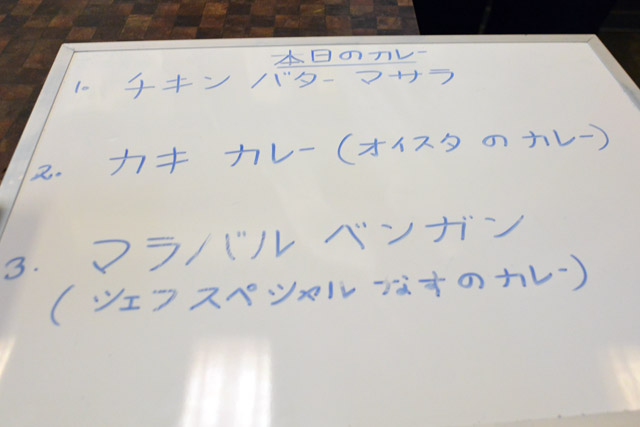 本日のカレー
1. チキン バター マサラ
2. カキ カレー (オイスタ の カレー)
3. マラバル ベンガン
(シェフ スペシャル なす の カレー)